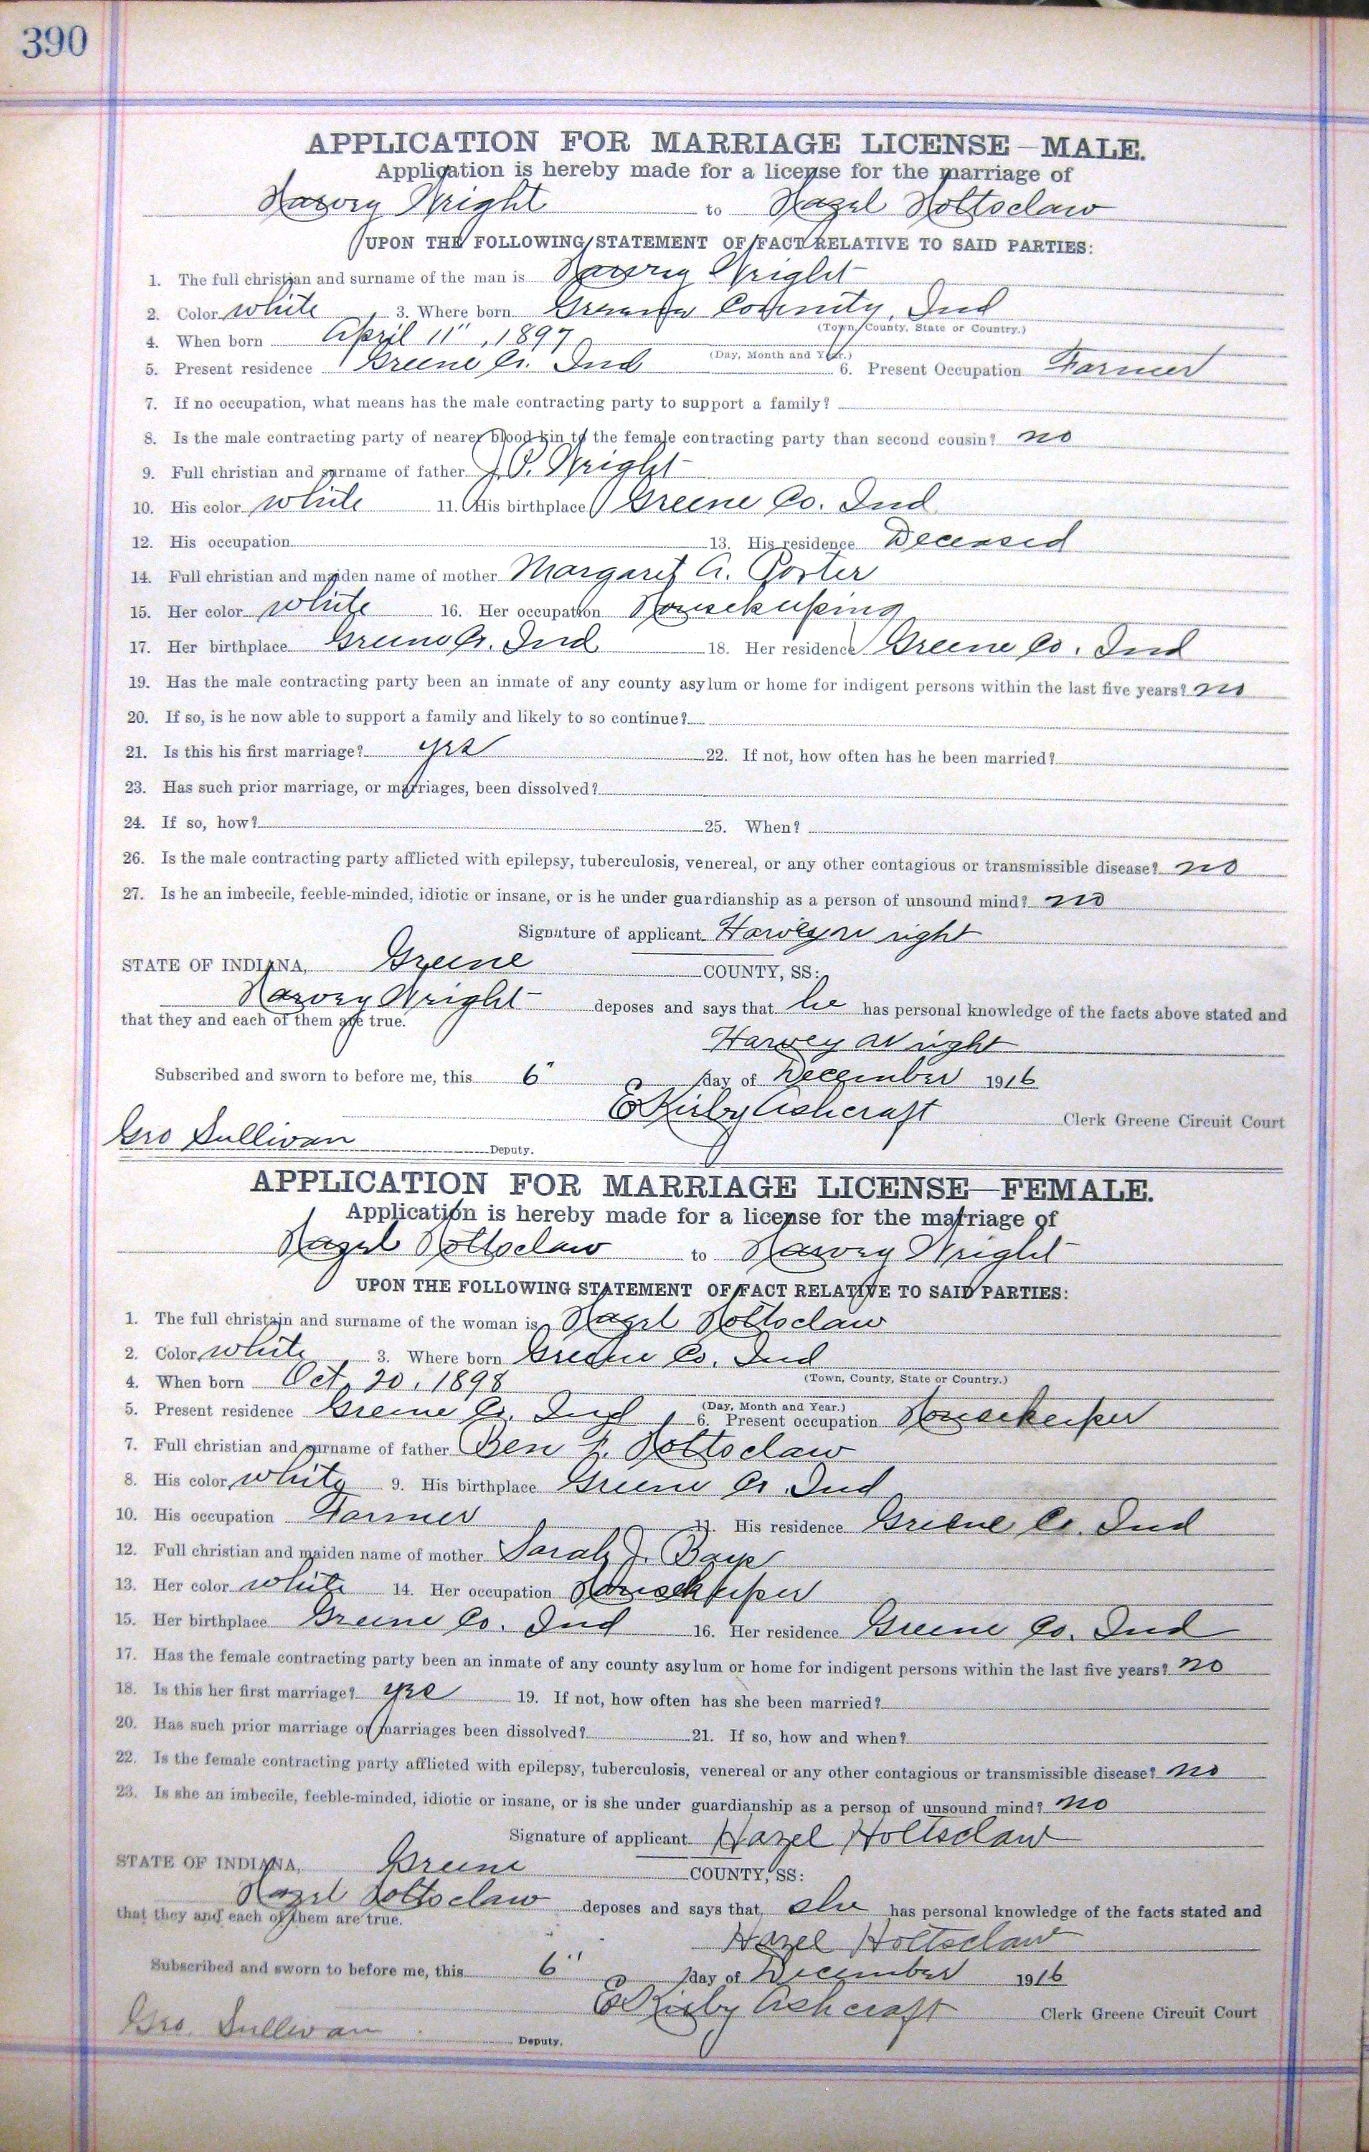 390
APPLICATION FOR MARRIAGE LICENSE—MALE.
Application is hereby made for a license for the marriage of
Harvey Wright to Hazel Holtsclaw
UPON THE FOLLOWING STATEMENT OF FACT RELATIVE TO SAID PARTIES:
1. The full christian and surname of the man is Harvey Wright
2. Color white 3. Where born Greene County, Ind
(Town, County, State or Country.)
4. When born April 11", 1897
(Day, Month and Year.)
5. Present residence Greene Co. Ind 6. Present Occupation Farmer
7. If no occupation, what means has the male contracting party to support a family?
8. Is the male contracting party of nearer blood kin to the female contracting party than second cousin? no
9. Full christian and surname of father J. P. Wright
10. His color white 11. His birthplace Greene Co. Ind
12. His occupation 13. His residence Deceased
14. Full christian and maiden name of mother Margaret A. Porter
15. Her color white 16. Her occupation Housekeeping
17. Her birthplace Greene Co. Ind 18. Her residence Greene Co. Ind
19. Has the male contracting party been an inmate of any county asylum or home for indigent persons within the last five years? no
20. If so, is he now able to support a family and likely to so continue?
21. Is this his first marriage? yes 22. If not, how often has he been married?
23. Has such prior marriage, or marriages, been dissolved?
24. If so, how? 25. When?
26. Is the male contracting party afflicted with epilepsy, tuberculosis, venereal, or any other contagious or transmissible disease? no
27. Is he an imbecile, feeble-minded, idiotic or insane, or is he under guardianship as a person of unsound mind? no
Signature of applicant Harvey Wright
STATE OF INDIANA, Greene COUNTY, SS:
Harvey Wright deposes and says that he has personal knowledge of the facts above stated and
that they and each of them are true.
Harvey Wright
Subscribed and sworn to before me, this 6" day of December 1916
E Kirby Ashcraft Clerk Greene Circuit Court
Geo Sullivan Deputy.
APPLICATION FOR MARRIAGE LICENSE—FEMALE.
Application is hereby made for a license for the marriage of
Hazel Holtsclaw to Harvey Wright
UPON THE FOLLOWING STATEMENT OF FACT RELATIVE TO SAID PARTIES:
1. The full christain and surname of the woman is Hazel Holtsclaw
2. Color white 3. Where born Greene Co. Ind
(Town, County, State or Country.)
4. When born Oct. 20, 1898
(Day, Month and Year.)
5. Present residence Greene Co. Ind 6. Present occupation Housekeeper
7. Full christian and surname of father Ben F. Holtsclaw
8. His color white 9. His birthplace Greene Co. Ind
10. His occupation Farmer 11. His residence Greene Co. Ind
12. Full christian and maiden name of mother Sarah J.
13. Her color white 14. Her occupation Housekeeper
15. Her birthplace Greene Co. Ind 16. Her residence Greene Co. Ind
17. Has the female contracting party been an inmate of any county asylum or home for indigent persons within the last five years? no
18. Is this her first marriage? yes 19. If not, how often has she been married?
20. Has such prior marriage or marriages been dissolved? 21. If so, how and when?
22. Is the female contracting party afflicted with epilepsy, tuberculosis, venereal or any other contagious or transmissible disease? no
23. Is she an imbecile, feeble-minded, idiotic or insane, or is she under guardianship as a person of unsound mind? no
Signature of applicant Hazel Holtsclaw
STATE OF INDIANA, Greene COUNTY, SS:
Hazel Holtsclaw deposes and says that she has personal knowledge of the facts stated and
that they and each of them are true.
Hazel Holtsclaw
Subscribed and sworn to before me, this 6" day of December 1916
E Kirby Ashcraft Clerk Greene Circuit Court
Geo. Sullivan Deputy.